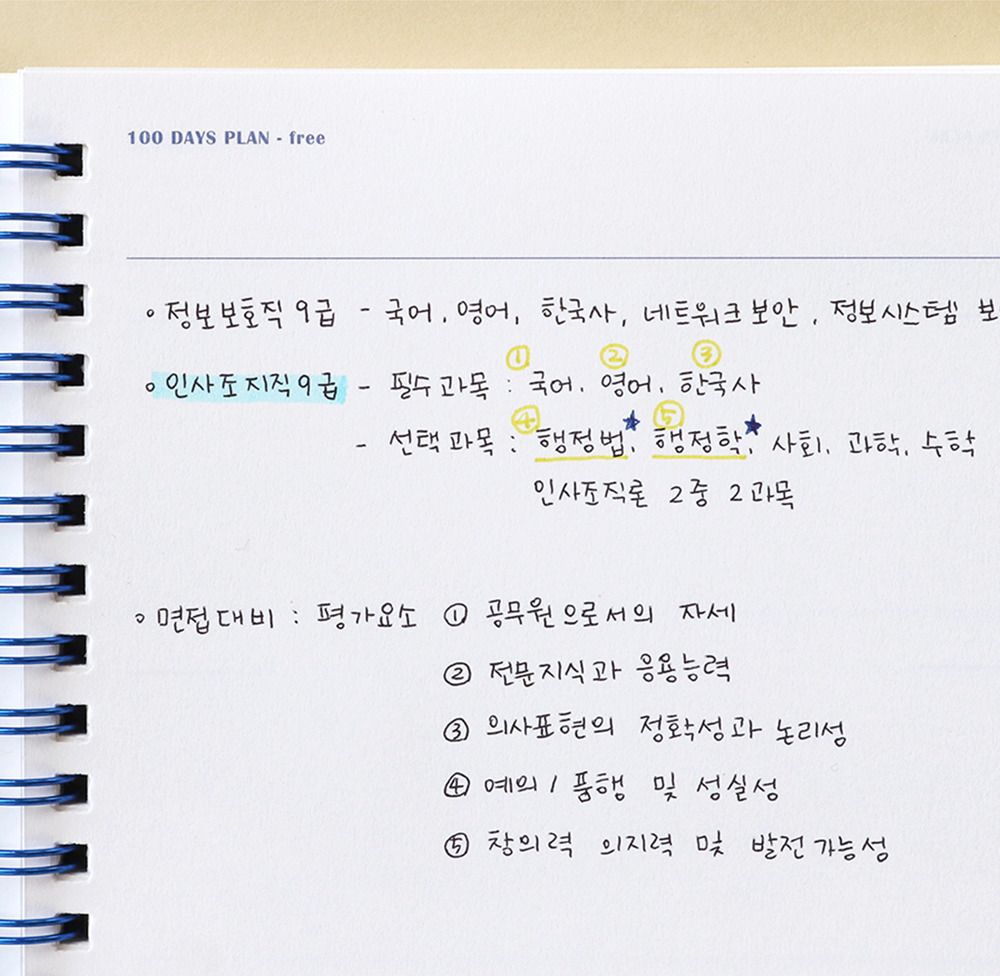 100 DAYS PLAN - free
◦ 정보보호직 9급 - 국어, 영어, 한국사, 네트워크 보안, 정보시스템 보
① ② ③
◦ 인사조지직9급 - 필수과목 : 국어, 영어, 한국사
④ ★ ⑤ ★
- 선택과목 : 행정법, 행정학, 사회, 과학, 수학
인사조직론 2중 2과목
◦ 면접대비 : 평가요소 ① 공무원으로서의 자세
② 전문지식과 응용능력
③ 의사표현의 정확성과 논리성
④ 예의 / 품행 및 성실성
⑤ 창의력 의지력 및 발전가능성